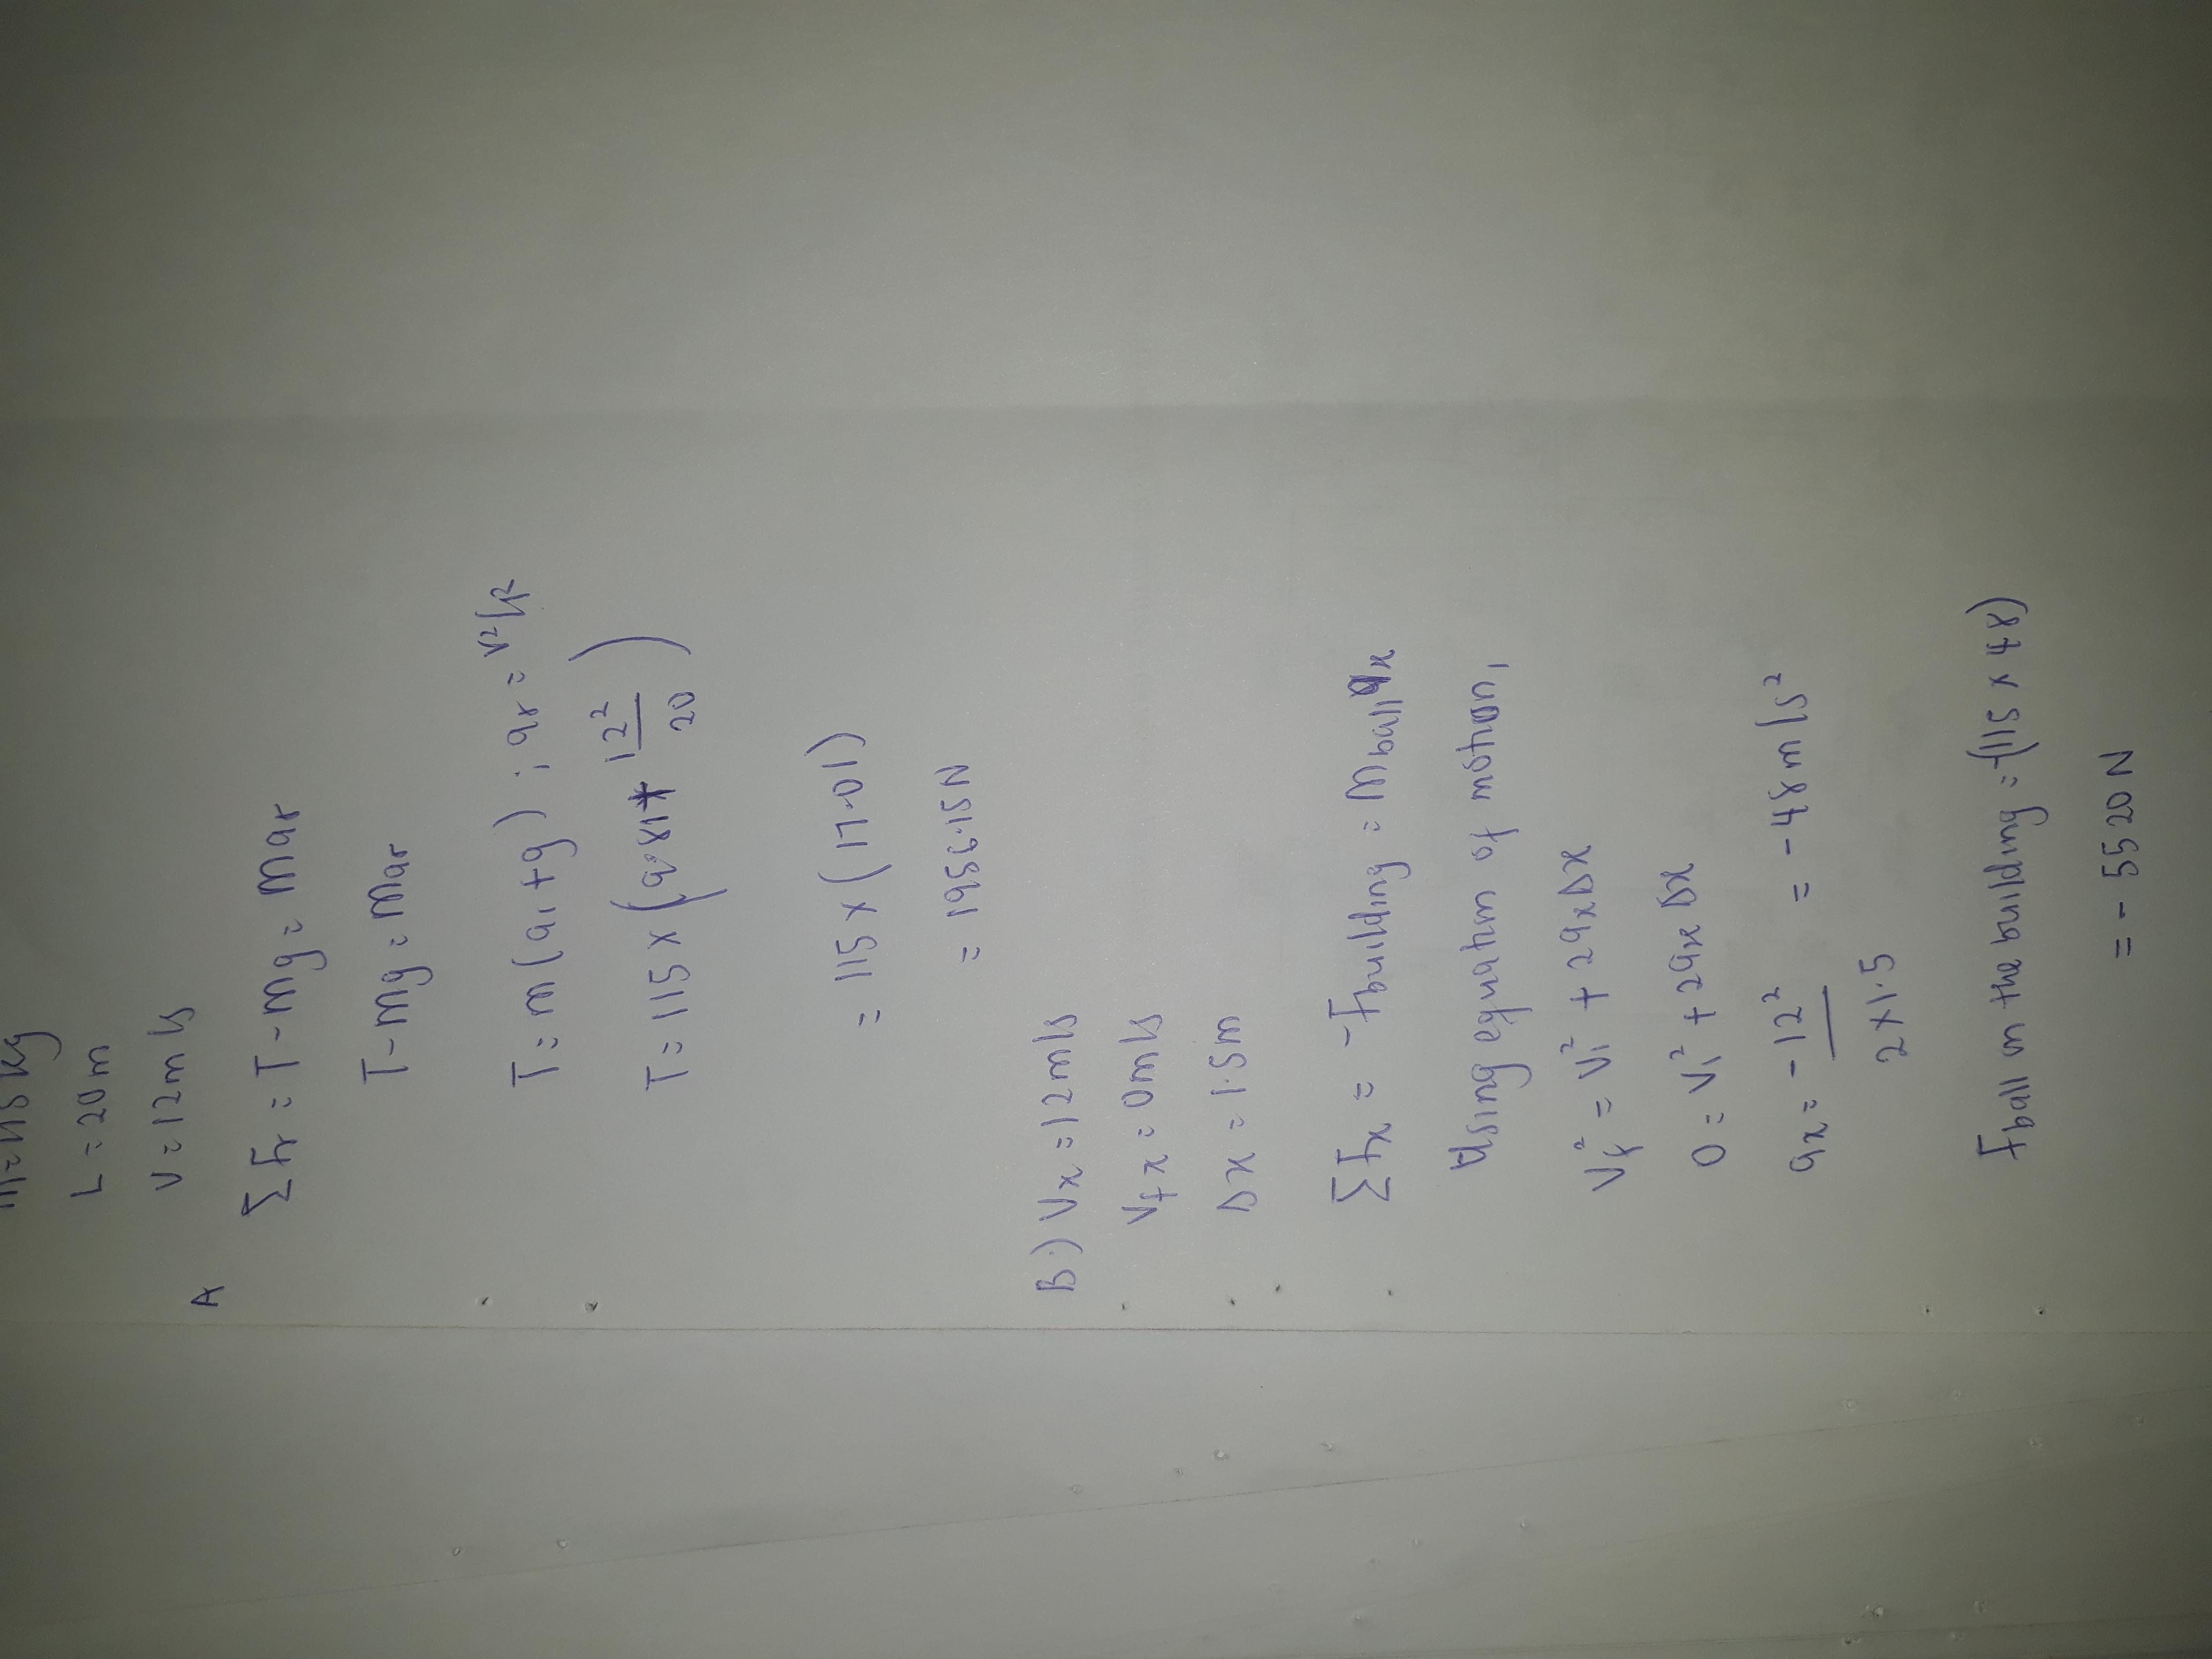 m=115kg
L = 20m
V = 12m/s
A
ΣFr = T - mg = mar
T - mg = mar
T = m(a₁ + g) ; ar = v²/r
T = 115 x (9.81 + 12²/20)
= 115 x (17.01)
= 1956.15N
B.) Vx = 12m/s
Vfx = 0m/s
Δx = 1.5m
ΣFx = -Fbuilding = Mball ax
Using equation of motion,
Vf² = Vi² + 2axΔx
0 = Vi² + 2axΔx
ax = -12²/2x1.5 = -48m/s²
Fball on the building = -(115 x 48)
= -5520N